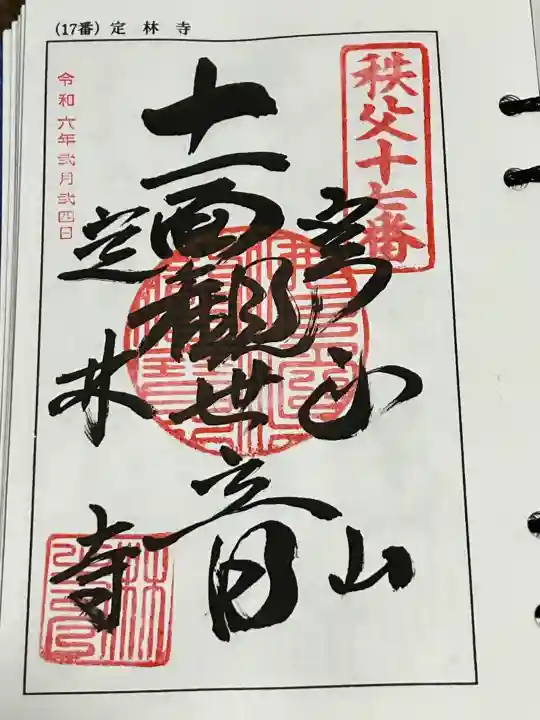 (17番) 定林寺
秩父十七番
實正山
十一面觀世音
定林寺
令和六年弐月弐四日